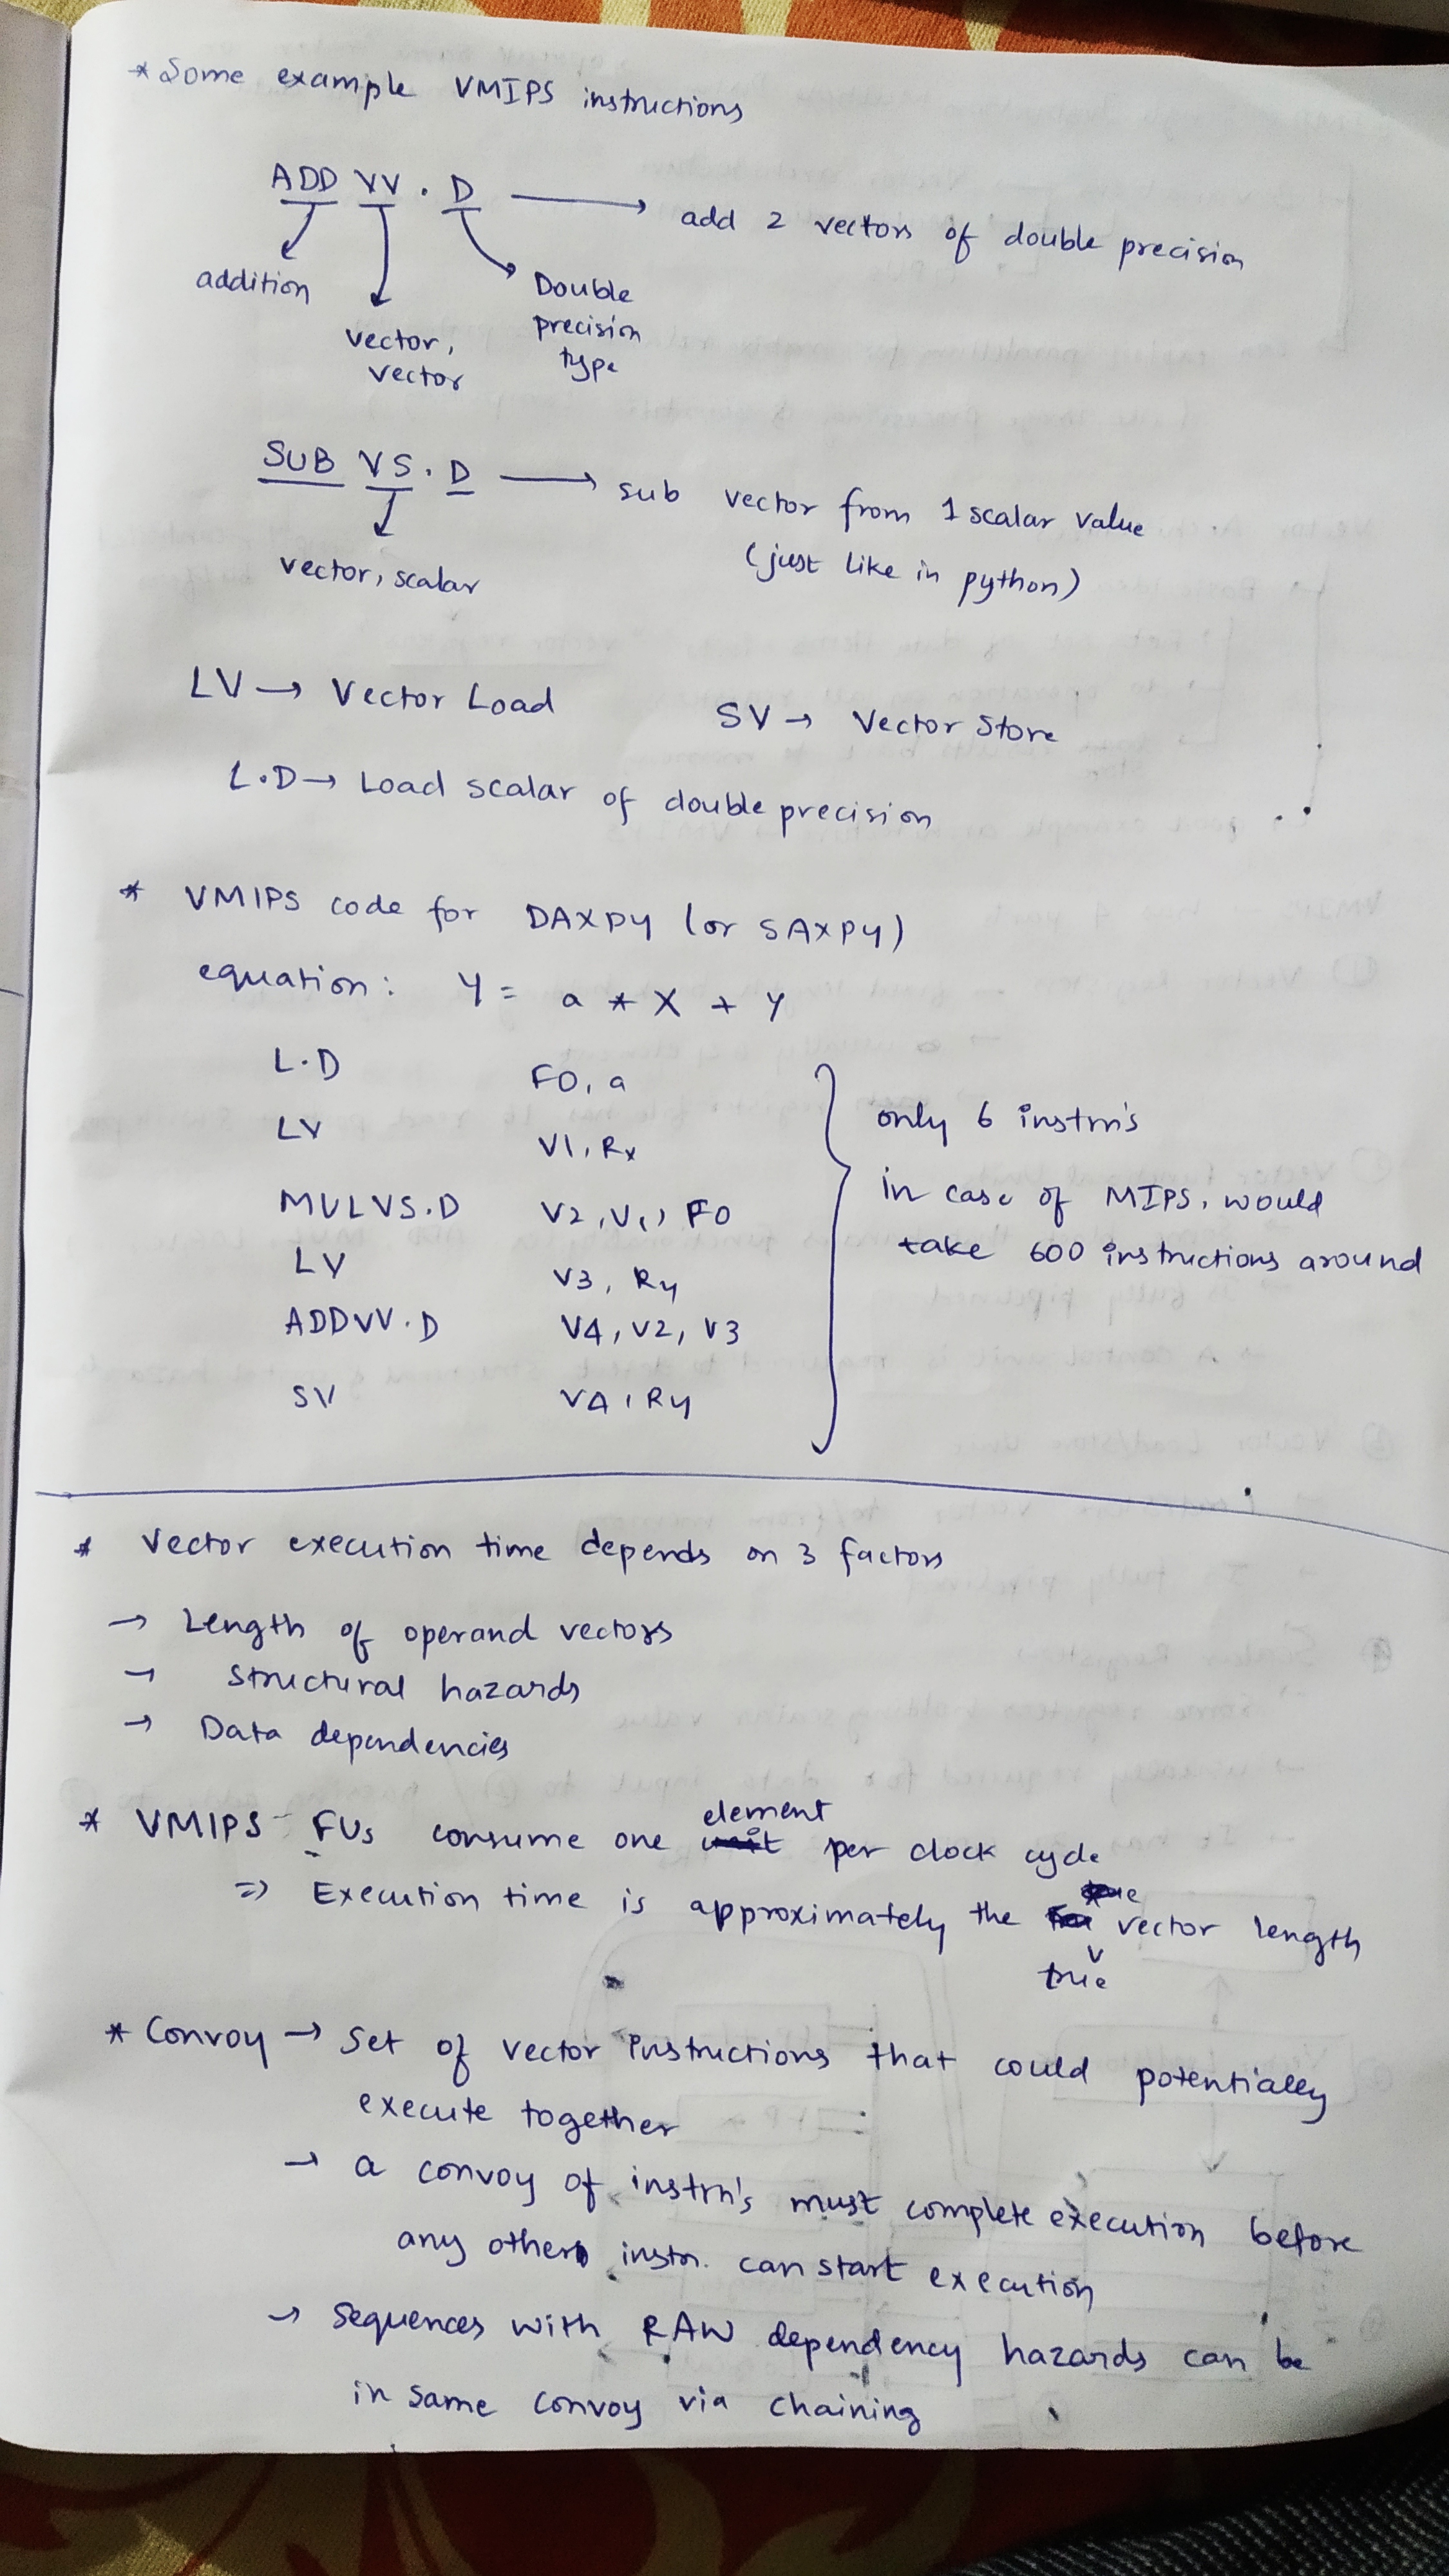 * Some example VMIPS instructions
ADD VV . D → add 2 vectors of double precision
addition
vector,
vector
Double
precision
type
SUB VS . D → sub vector from 1 scalar value
(just like in python)
vector, scalar
LV → Vector Load
SV → Vector Store
L.D → Load scalar of double precision
* VMIPS code for DAXPY (or SAXPY)
equation: Y = a * X + Y
L.D F0, a
LV V1, Rx
MULVS.D V2, V1, F0
LV V3, Ry
ADDVV.D V4, V2, V3
SV V4, Ry
only 6 instrn's
in case of MIPS, would
take 600 instructions around
* Vector execution time depends on 3 factors
→ Length of operand vectors
→ Structural hazards
→ Data dependencies
* VMIPS FUs consume one element per clock cycle
⇒ Execution time is approximately the true vector length
* Convoy → Set of vector instructions that could potentially
execute together
→ a convoy of instrn's must complete execution before
any other instn. can start execution
→ Sequences with RAW dependency hazards can be
in same convoy via chaining